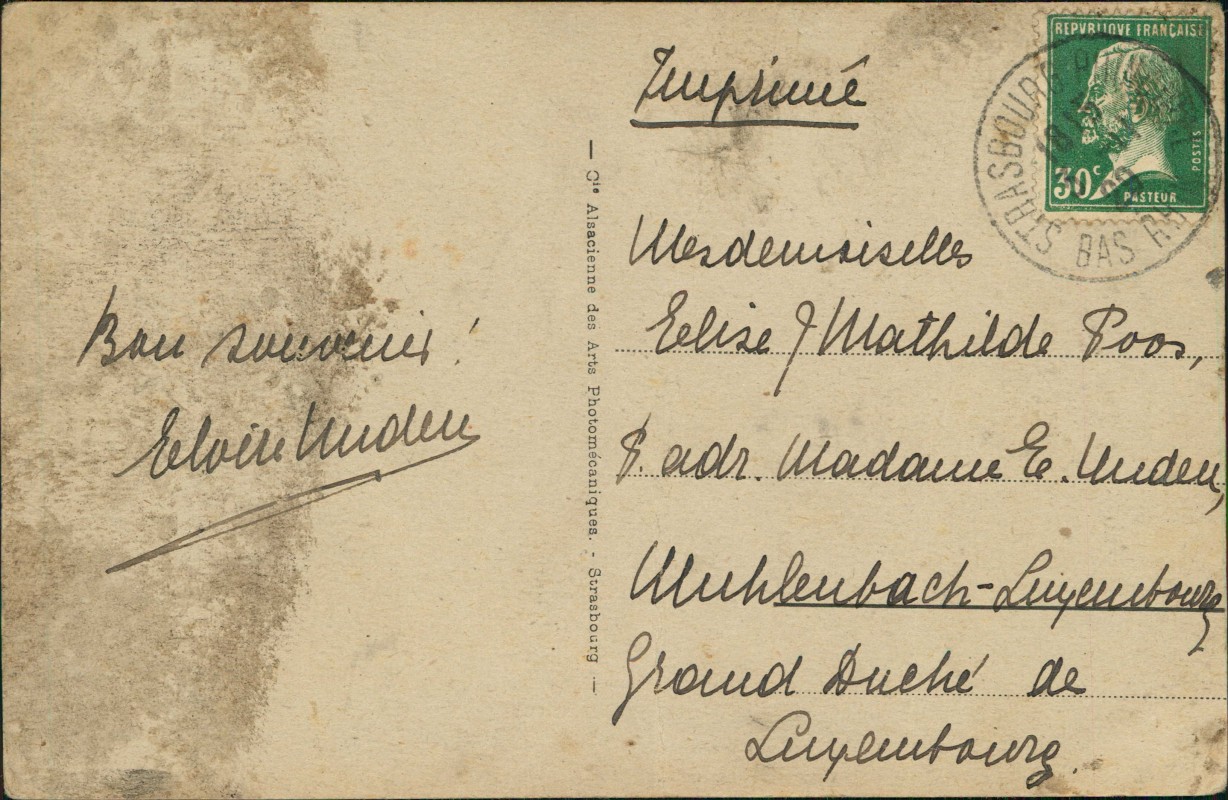 Imprimé
REPVBLIQUE FRANÇAISE
POSTES
30c
PASTEUR
STRASBOURG
BAS RHIN
Bon souvenir!
Eloise Unden
— Cie Alsacienne des Arts Photomécaniques. - Strasbourg —
Mesdemoiselles
Elise & Mathilde Poos,
P. adr. Madame E. Unden,
Muhlenbach-Luxembourg
Grand Duché de
Luxembourg.